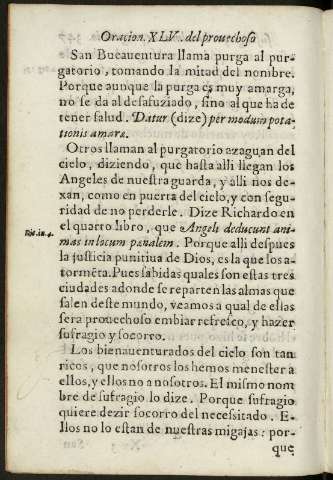 Oracion. XLV. del prouechoso
San Buenauentura llama purga al pur-
gatorio, tomando la mitad del nombre.
Porque aunque la purga es muy amarga,
no se da al desafuziado, sino al que ha de
tener salud. Datur (dize) per modum pota-
tionis amaræ.
Otros llaman al purgatorio zaguan del
cielo, diziendo, que hasta alli llegan los
Angeles de nuestra guarda, y alli nos de-
xan, como en puerta del cielo, y con segu-
ridad de no perderle. Dize Richardo en
el quarto libro, que Angeli deducunt ani-
Ric. in. 4.
mas in locum pænalem. Porque alli despues
la justicia punitiua de Dios, es la que los a-
tormēta. Pues sabidas quales son estas tres
ciudades adonde se reparten las almas que
salen deste mundo, veamos a qual de ellas
sera prouechoso embiar refresco, y hazer
sufragio y socorro.
Los bienauenturados del cielo son tan
ricos, que nosotros los hemos menester a
ellos, y ellos no a nosotros. El mismo nom
bre de sufragio lo dize. Porque sufragio
quiere dezir socorro del necessitado. E-
llos no lo estan de nuestras migajas: por-
que